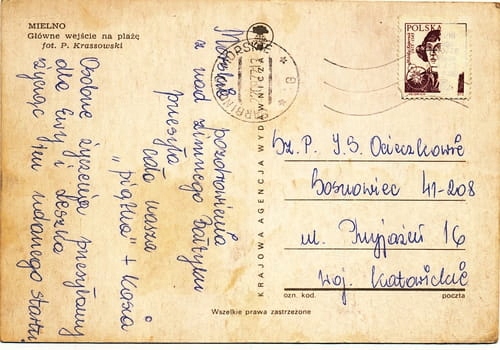 MIELNO
Główne wejście na plażę
fot. P. Krassowski
pozdrowienia
z nad zimnego Bałtyku
przesyła
cała nasza
„piątka” + Kasia
Osobne życzenia przesyłamy
dla Ewy i Leszka
życząc im udanego startu
KRAJOWA AGENCJA WYDAWNICZA
POLSKA
Sz. P. J. S. Ocieczkowie
Sosnowiec 41-208
ul. Przyjaźń 16
woj. Katowickie
ozn. kod.
poczta
Wszelkie prawa zastrzeżone